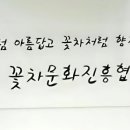 럼 아름답고 꽃차처럼 향
꽃차문화진흥협